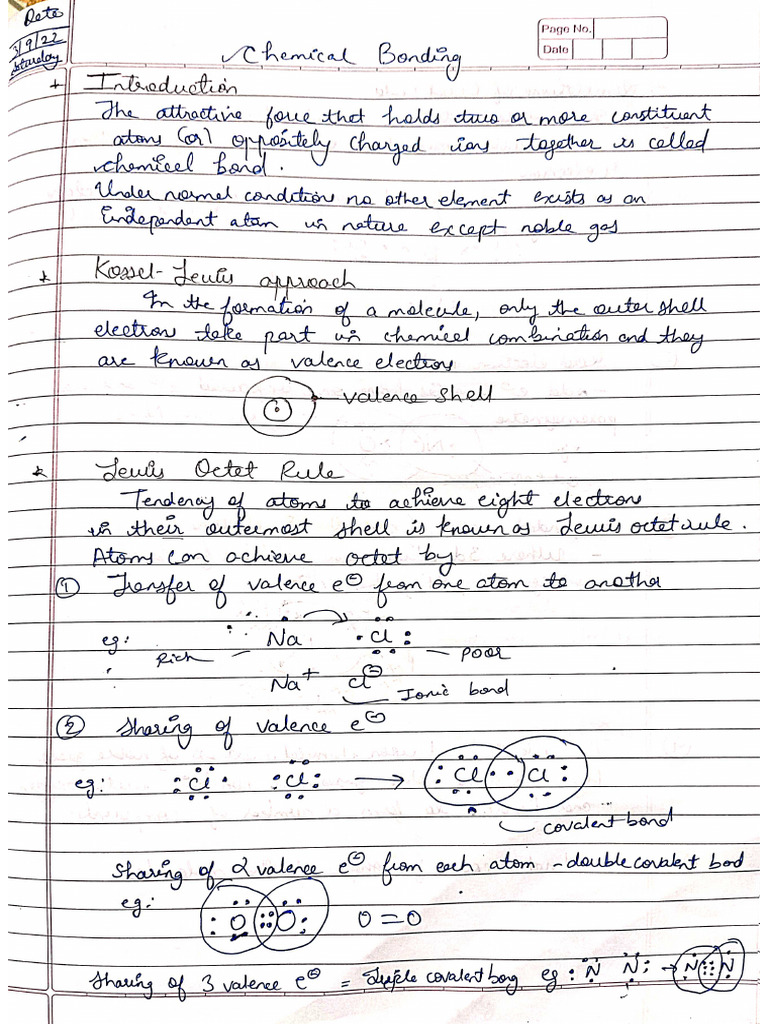 Date
3/9/22
Saturday
Page No.
Date
Chemical Bonding
Introduction
The attractive force that holds two or more constituent
atoms (or) oppositely charged ions together is called
chemical bond.
Under normal conditions no other element exists as an
independent atom in nature except noble gas
Kossel-Lewis approach
In the formation of a molecule, only the outer shell
electrons take part in chemical combination and they
are known as valence electrons
valence shell
Lewis Octet Rule
Tendency of atoms to achieve eight electrons
in their outermost shell is known as Lewis octet rule.
Atoms can achieve octet by
① Transfer of valence e⊖ from one atom to another
eg: Na Cl
Rich — — poor
Na+ Cl⊖
Ionic bond
② Sharing of valence e⊖
eg: Cl Cl → Cl Cl
covalent bond
Sharing of 2 valence e⊖ from each atom - double covalent bond
eg: O O O=O
Sharing of 3 valence e⊖ = Triple covalent bong eg N N → N N